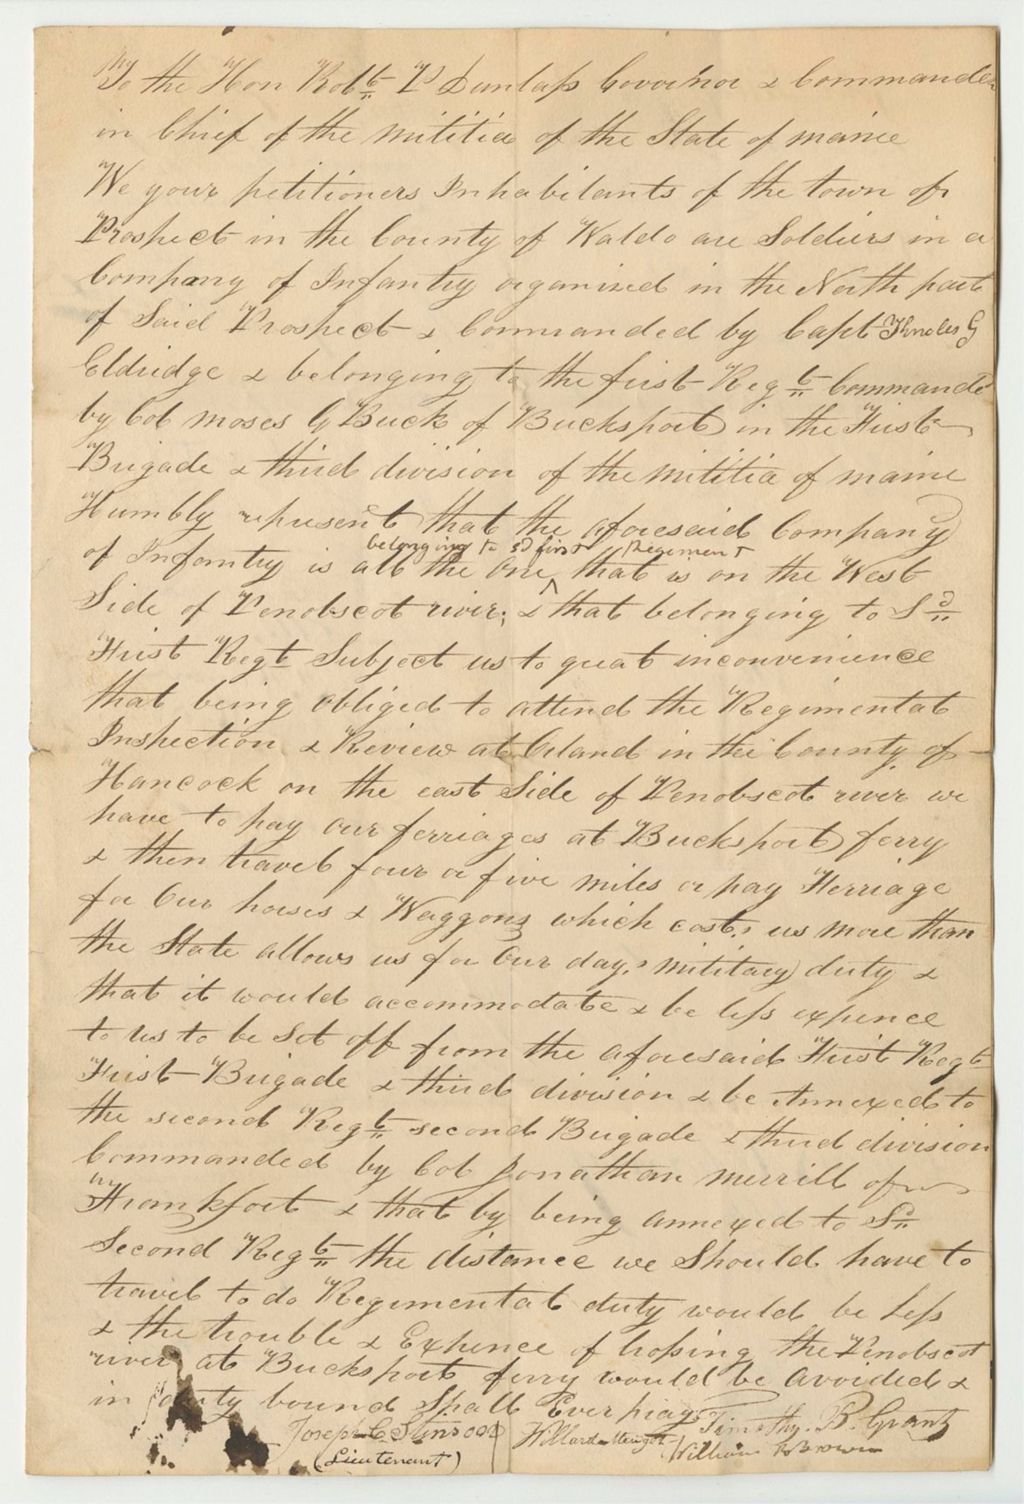 To the Hon Robt P Dunlap Governor & Commander
in Chief of the militia of the State of maine
We your petitioners Inhabitants of the town of
Prospect in the County of Waldo are Soldiers in a
Company of Infantry organised in the North part
of Said Prospect & Commanded by Capt G
Eldridge & belonging to the first Regt Commande
by Col moses G Buck of Bucksport in the First
Brigade & third division of the militia of maine
Humbly represent that the aforesaid Company
belonging to sd first Regiment
of Infantry is all the One ^ that is on the West
Side of Penobscot river; & that belonging to Sd
First Regt Subject us to great inconvenience
that being obliged to attend the Regimental
Inspection & Review at Orland in the County of
Hancock on the east Side of Penobscot river we
have to pay our ferriages at Bucksport ferry
& then travel four or five miles or pay Ferriage
for Our horses & Waggons which costs us more than
the State allows us for Our days military duty &
that it would accommodate & be less expence
to us to be Set off from the aforesaid First Regt
First Brigade & third division & be Annexed to
the second Regt second Brigade & third division
Commanded by Col Jonathan merrill of
Frankfort & that by being annexed to Sd
Second Regt the distance we Should have to
travel to do Regimental duty would be less
& the trouble & Expence of Crossing the Penobscot
river at Bucksport ferry would be avoided &
in duty bound Shall Ever pray Timothy B. Grant
Joseph C Stinson Willard William Brown
(Lieutenant)